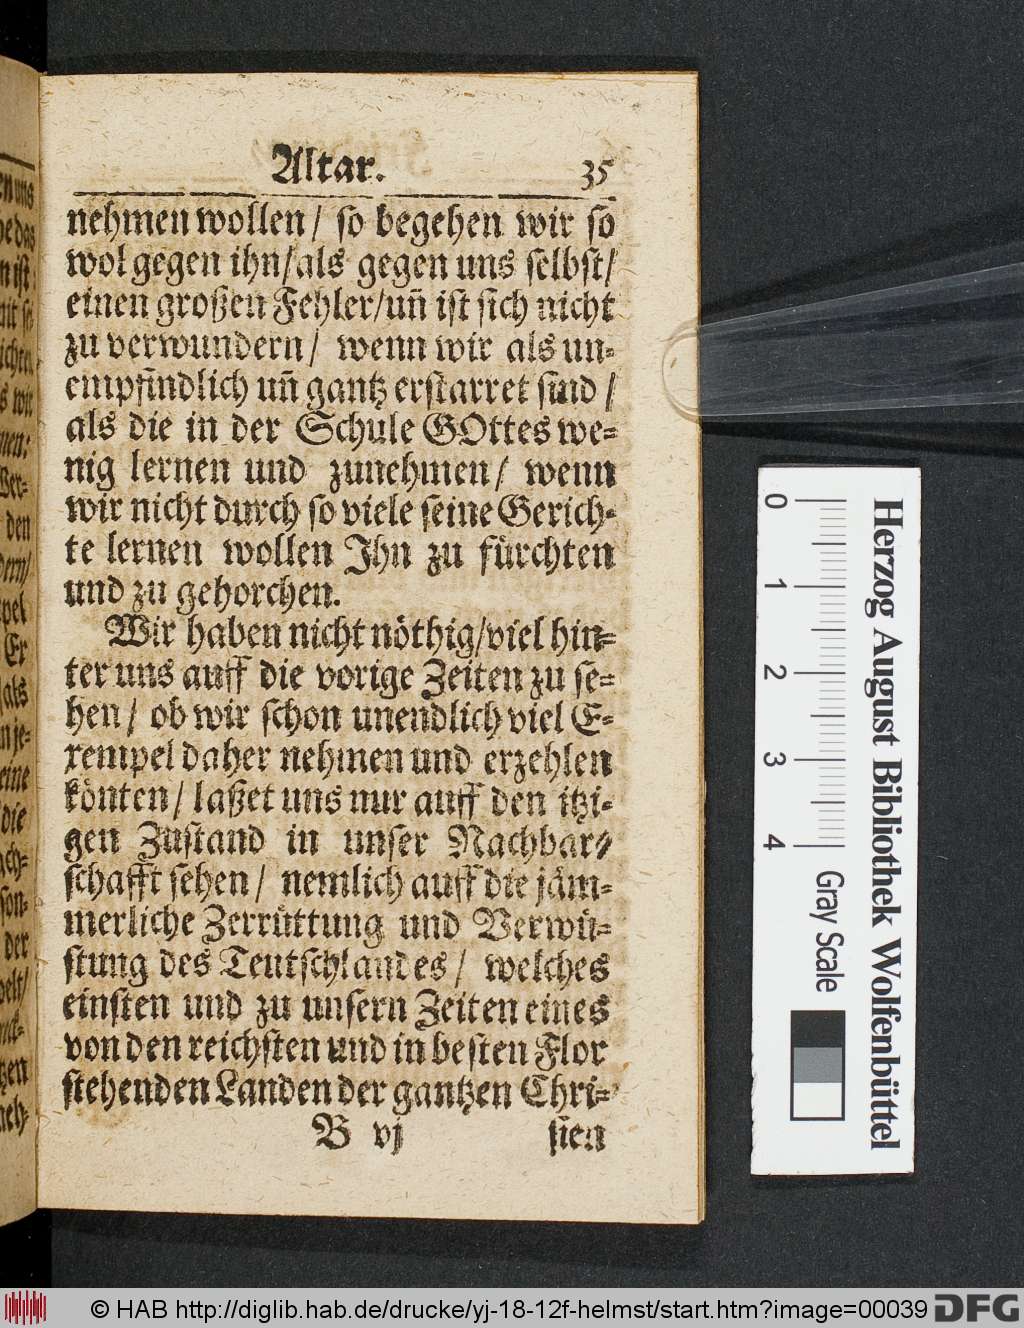 Altar. 35
nehmen wollen / so begehen wir so
wol gegen ihn / als gegen uns selbst /
einen großen Fehler / uñ ist sich nicht
zu verwundern / wenn wir als un=
empfindlich uñ gantz erstarret sind /
als die in der Schule GOttes we=
nig lernen und zunehmen / wenn
wir nicht durch so viele seine Gerich=
te lernen wollen Ihn zu fürchten
und zu gehorchen.
Wir haben nicht nöthig / viel hin=
ter uns auff die vorige Zeiten zu se=
hen / ob wir schon unendlich viel E=
xempel daher nehmen und erzehlen
könten / laßet uns nur auff den itzi=
gen Zustand in unser Nachbar=
schafft sehen / nemlich auff die jäm=
merliche Zerrüttung und Verwü=
stung des Teutschlandes / welches
einsten und zu unsern Zeiten eines
von den reichsten und in besten Flor
stehenden Landen der gantzen Chri=
B vj sten
en uns
he das
n ist
mit se
ichten
s wir
men:
Ver=
den
dern/
pel
Er
als
n je=
eine
die
ach=
son=
der
velt/
tzen
0 1 2 3 4
Gray Scale
Herzog August Bibliothek Wolfenbüttel
© HAB http://diglib.hab.de/drucke/yj-18-12f-helmst/start.htm?image=00039 DFG